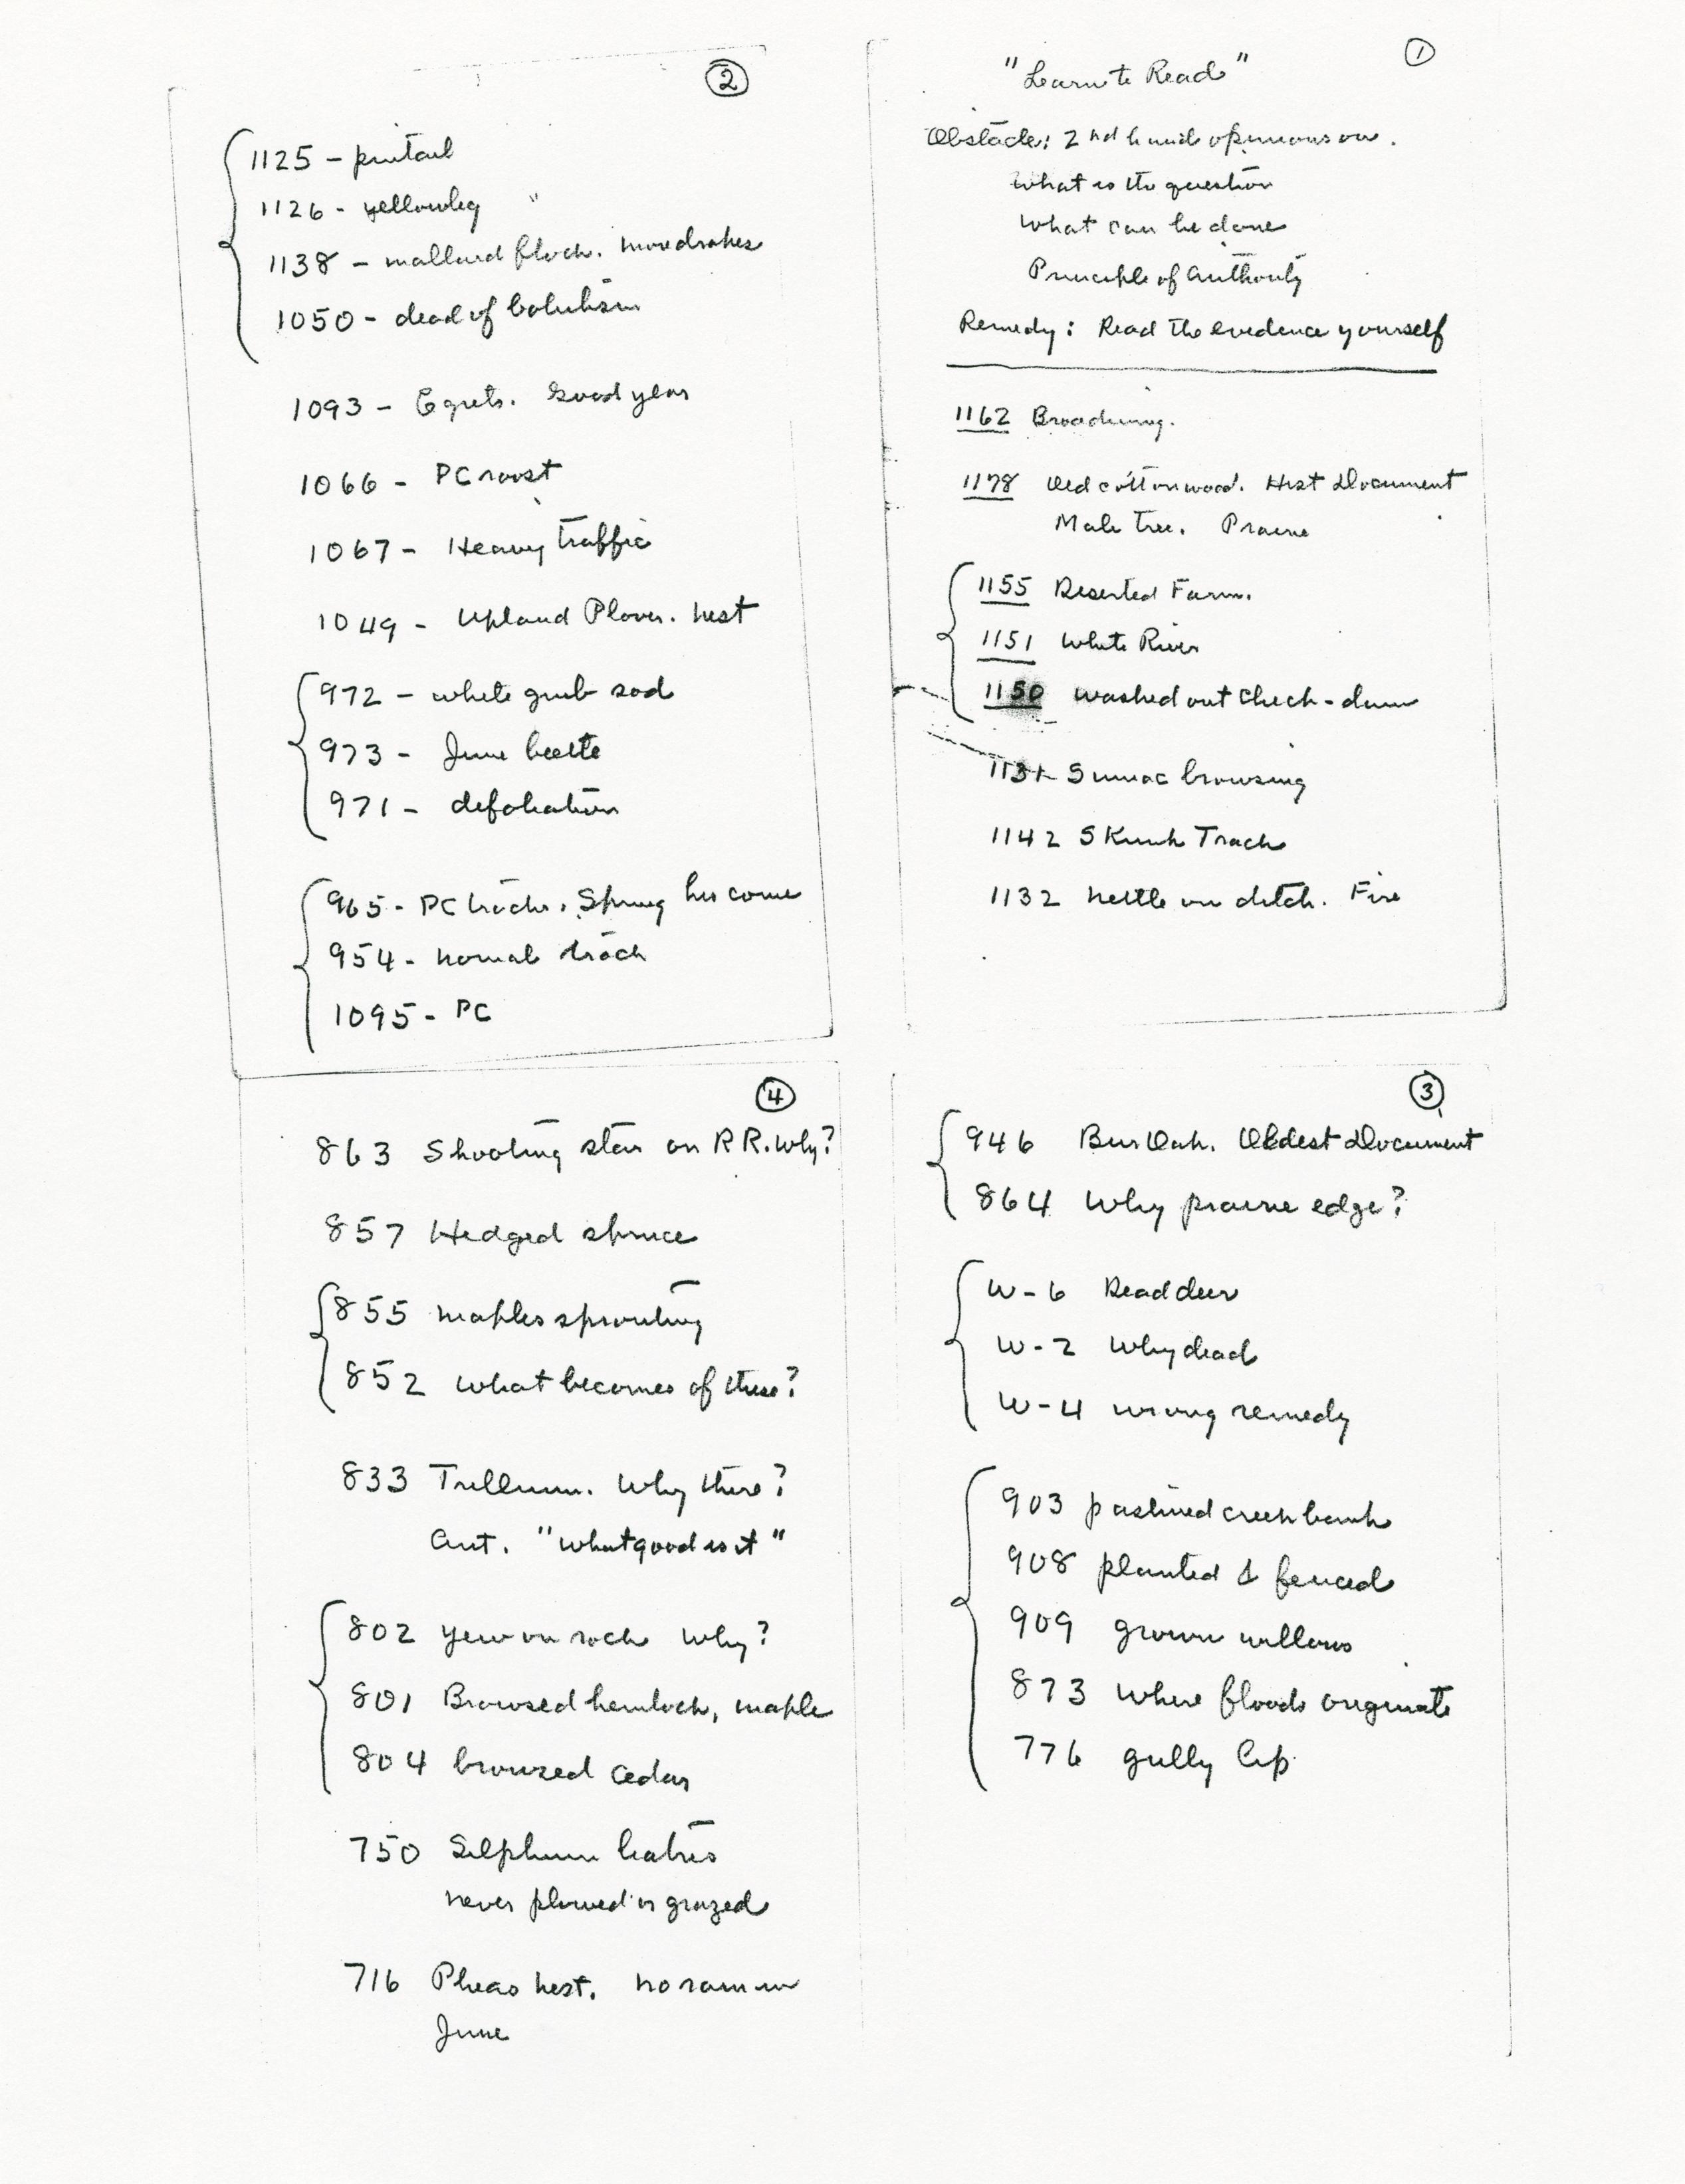 ①
"Learn to Read"
Obstacle: 2nd hand opinions on.
What is the question
What can be done
Principle of authority
Remedy: Read the evidence yourself
1162 Broadwing.
1178 Old cottonwood. Hist Document
Male tree. Prairie
1155 Deserted Farm.
1151 White River
1150 washed out check-dam
1131 Sumac browsing
1142 Skunk Track
1132 Nettle on ditch. Fire
②
1125 - pintail
1126 - yellowleg "
1138 - mallard flock. More drakes
1050 - dead of botulism
1093 - Egrets. Good year
1066 - PC roost
1067 - Heavy traffic
1049 - Upland Plover. nest
972 - white grub sod
973 - June beetle
971 - defoliation
965 - PC tracks. Spring has come
954 - normal track
1095 - PC
③
946 Bur Oak. Oldest Document
864 Why prairie edge?
W-6 Dead deer
W-2 Why dead
W-4 wrong remedy
903 pastured creek bank
908 planted & fenced
909 grown willows
873 Where floods originate
776 gully
④
863 Shooting star on RR. Why?
857 Hedged spruce
855 maples sprouting
852 What becomes of these?
833 Trillium. Why there?
Ant. "What good is it"
802 yew on rock Why?
801 Browsed hemlock, maple
804 browsed cedar
750 Silphium liatris
never plowed or grazed
716 Pheas nest. no rain in
June